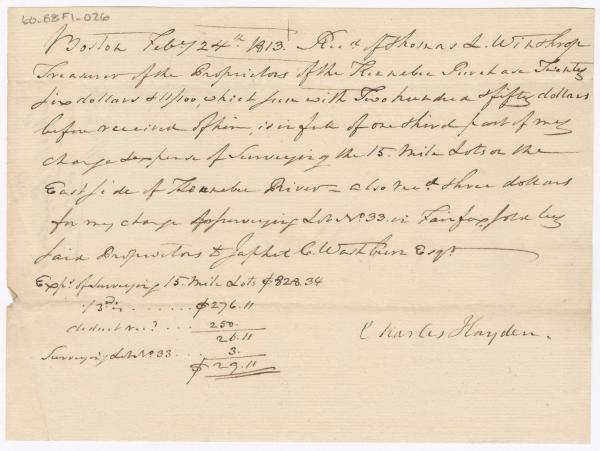 60.BBF1-026
Boston Feby 24th 1813. Recd of Thomas L. Winthrop
Treasurer of the Proprietors of the Kennebec Purchase Twenty
six dollars & 11/100, which sum with Two hundred & fifty dollars
before received of him, is in full of one third part of my
charge & expense of Surveying the 15. Mile Lots on the
East side of Kennebec River – also recd three dollars
for my charge of surveying Lot No. 33. in Fairfax, sold by
said Proprietors to Japhet C. Washburn Esqr.
Exps. of Surveying 15. Mile Lots $828.34
1/3d is ...... $276.11
deduct recd. ... 250.
26.11
Surveying Lot No. 33 ... 3.
$29.11
Charles Hayden.